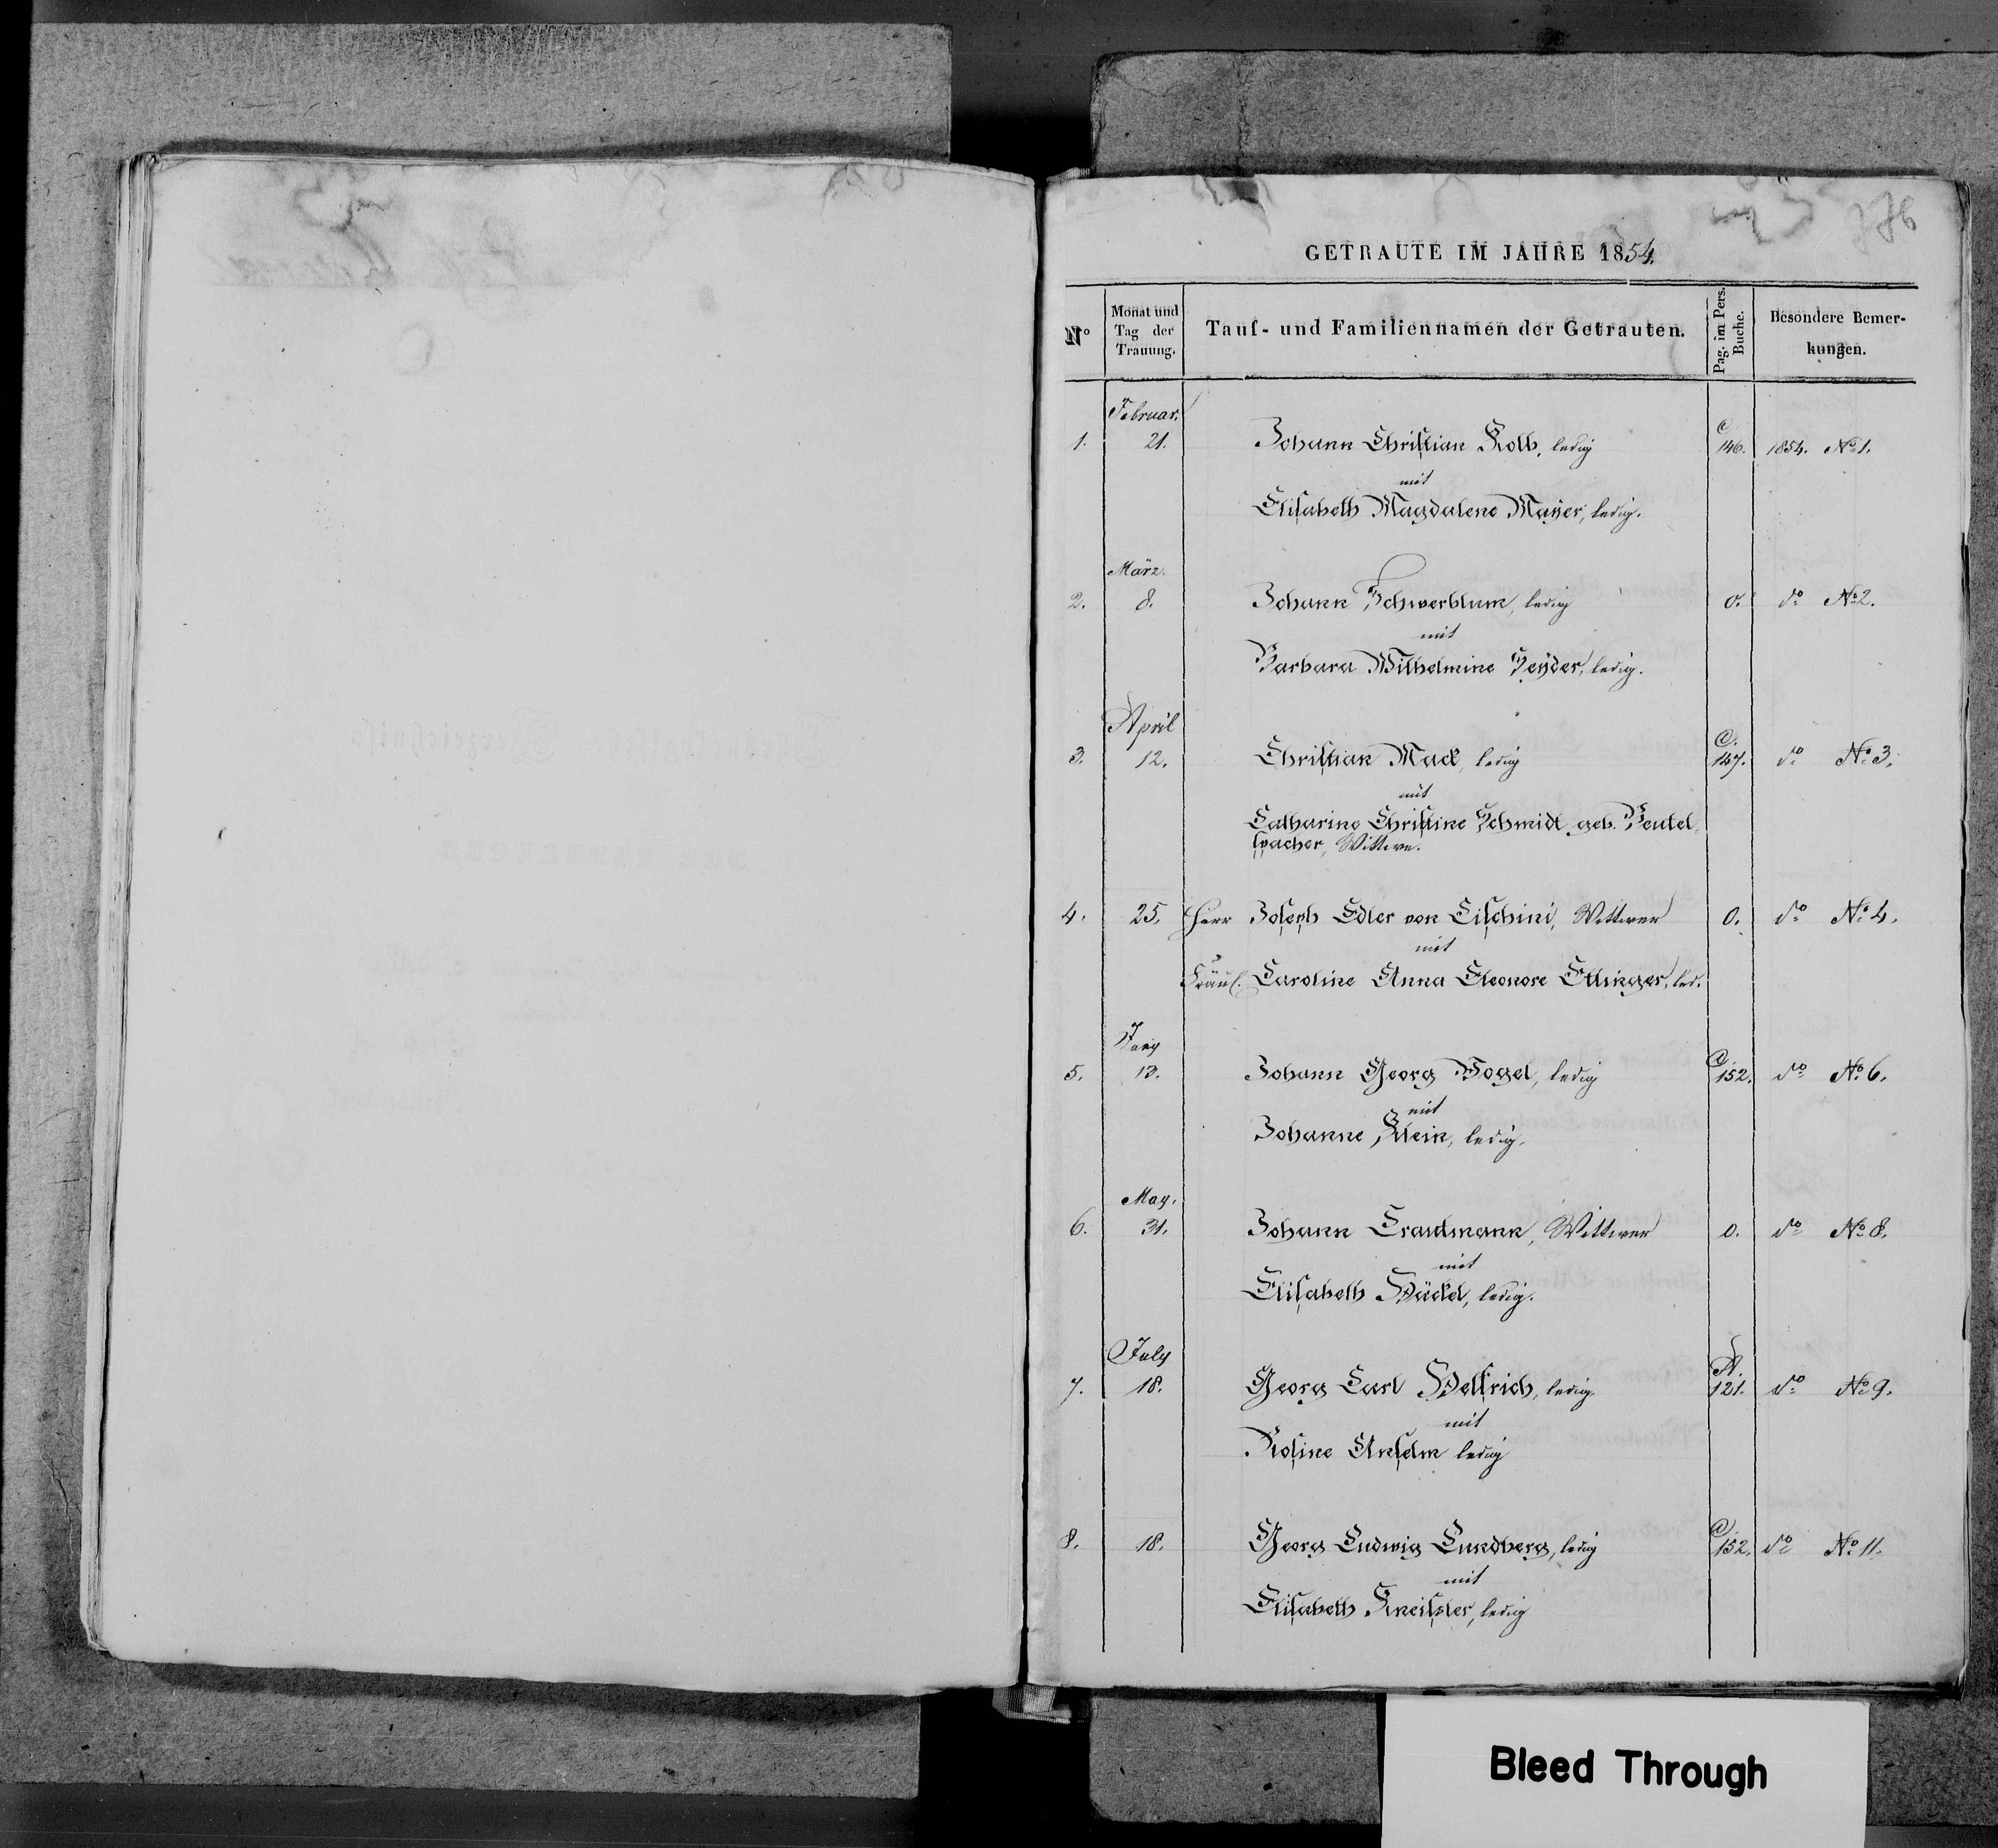 776
GETRAUTE IM JAHRE 1854.
No
Monat und
Tag der
Trauung.
Tauf- und Familiennamen der Getrauten.
Pag. im Pers.
Buche.
Besondere Bemer-
kungen.
Februar.
1. 21. Johann Christian Kolb, ledig C. 146. 1854. No 1.
mit
Elisabeth Magdalene Mayer, ledig.
März.
2. 8. Johann Schwerblum, ledig 0. do No 2.
mit
Barbara Wilhelmine Seyder, ledig.
April
3. 12. Christian Mack, ledig C. 147. do No 3.
mit
Catharine Christine Schmidt, geb. Beutel
spacher, Wittwe.
4. 25. Herr Joseph Edler von Cischini, Wittwer 0. do No 4.
mit
Fräul. Caroline Anna Eleonore Ettinger, led.
Juny
5. 13. Johann Georg Vogel, ledig C. 152. do No 6.
mit
Johanne Klein, ledig.
May.
6. 31. Johann Trautmann, Wittwer 0. do No 8.
mit
Elisabeth Häckel, ledig.
July
7. 18. Georg Carl Helfrich, ledig A. 121. do No 9.
mit
Rosine Anselm ledig
8. 18. Georg Ludwig Lundberg, ledig C. 152. do No 11.
mit
Elisabeth Kneißler, ledig
Bleed Through